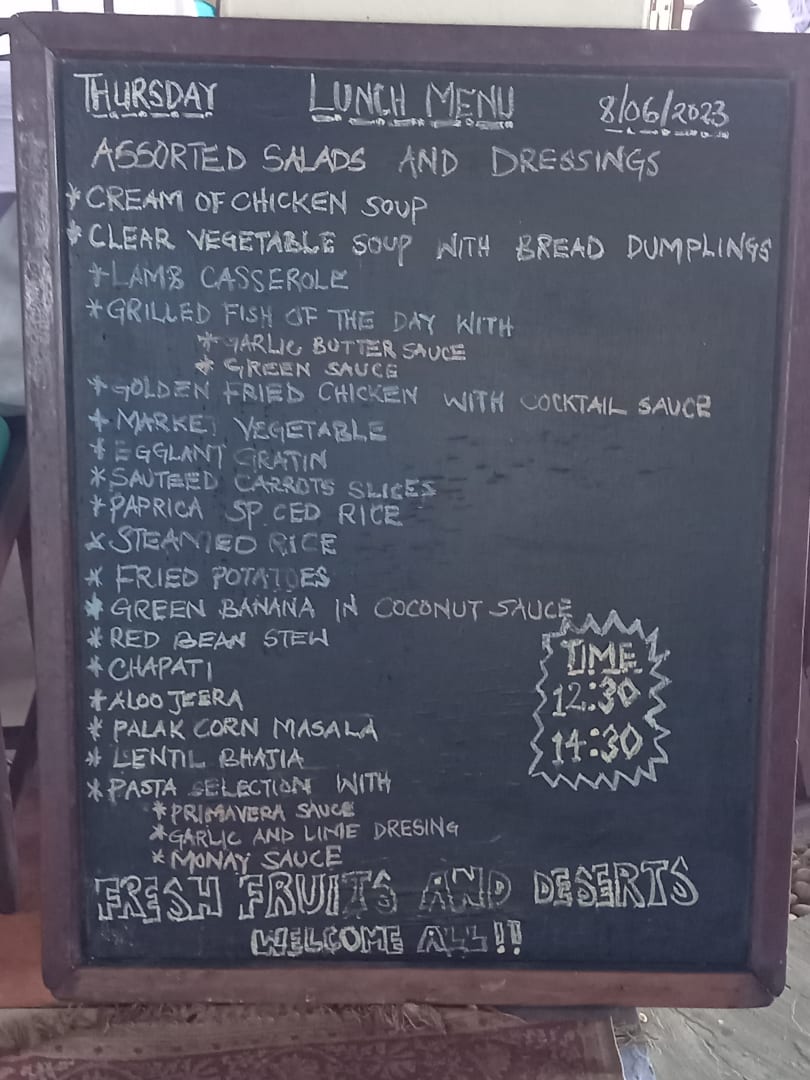 THURSDAY LUNCH MENU 8/06/2023
ASSORTED SALADS AND DRESSINGS
* CREAM OF CHICKEN SOUP
* CLEAR VEGETABLE SOUP WITH BREAD DUMPLINGS
* LAMB CASSEROLE
* GRILLED FISH OF THE DAY WITH
* GARLIC BUTTER SAUCE
* GREEN SAUCE
* GOLDEN FRIED CHICKEN WITH COCKTAIL SAUCE
* MARKET VEGETABLE
* EGGLANT GRATIN
* SAUTEED CARROTS SLICES
* PAPRICA SP CED RICE
* STEAMED RICE
* FRIED POTATOES
* GREEN BANANA IN COCONUT SAUCE
* RED BEAN STEW
* CHAPATI
* ALOO JEERA
* PALAK CORN MASALA
* LENTIL BHAJIA
* PASTA SELECTION WITH
* PRIMAVERA SAUCE
* GARLIC AND LIME DRESING
* MONAY SAUCE
TIME
12:30
14:30
FRESH FRUITS AND DESERTS
WELCOME ALL!!